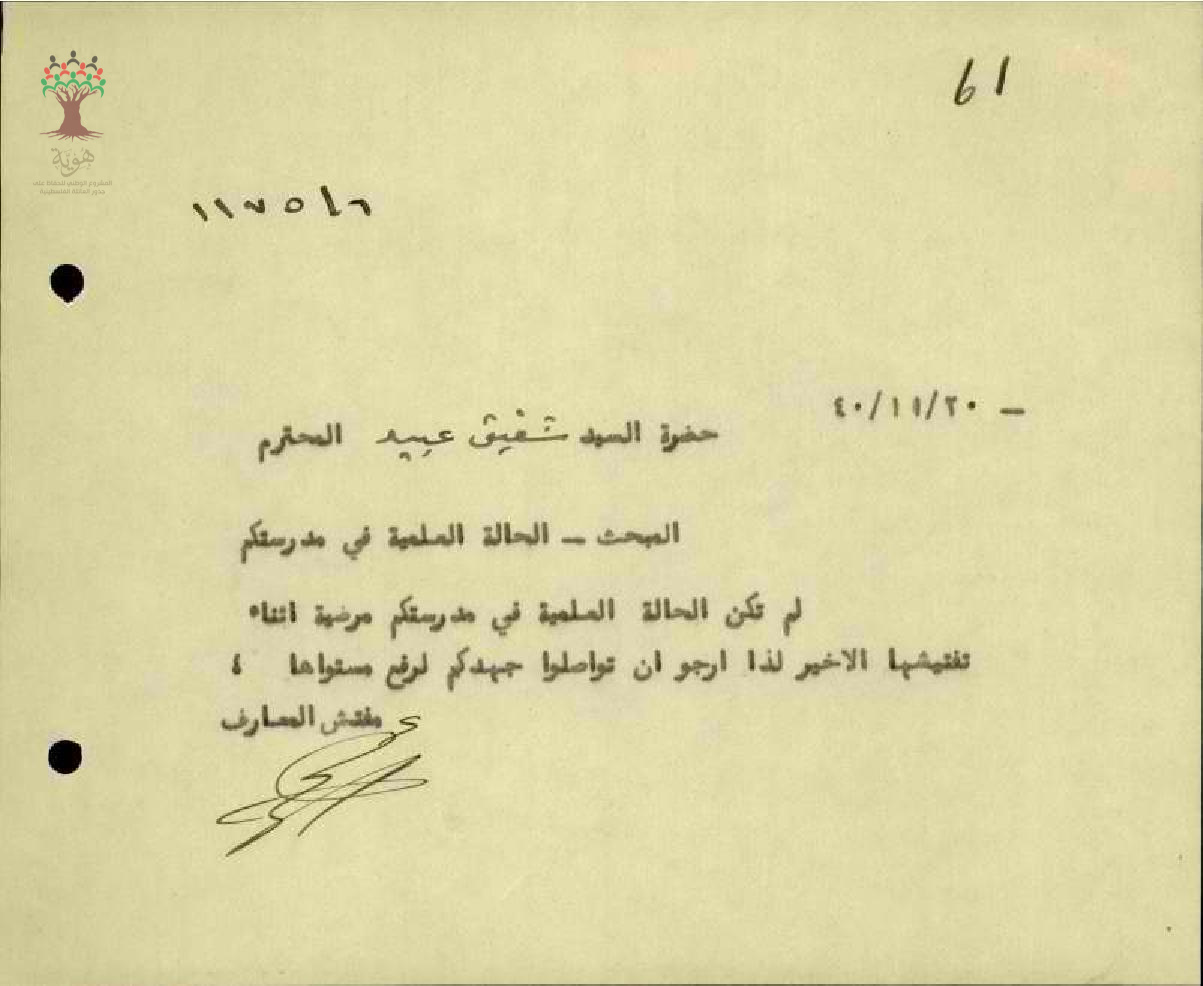 61
هوية
المشروع الوطني للحفاظ على
جذور العائلة الفلسطينية
– ٤٠/١١/٢٠
حضرة السيد شفيق عبيد المحترم
المبحث – الحالة العلمية في مدرستكم
لم تكن الحالة العلمية في مدرستكم مرضية اثناء
تفتيشها الاخير لذا ارجو ان تواصلوا جهدكم لرفع مستواها ؛
مفتش المعارف